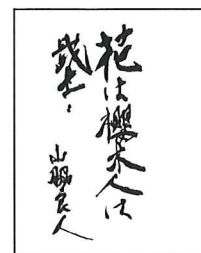 花は櫻木人は
武士、
山脇良人